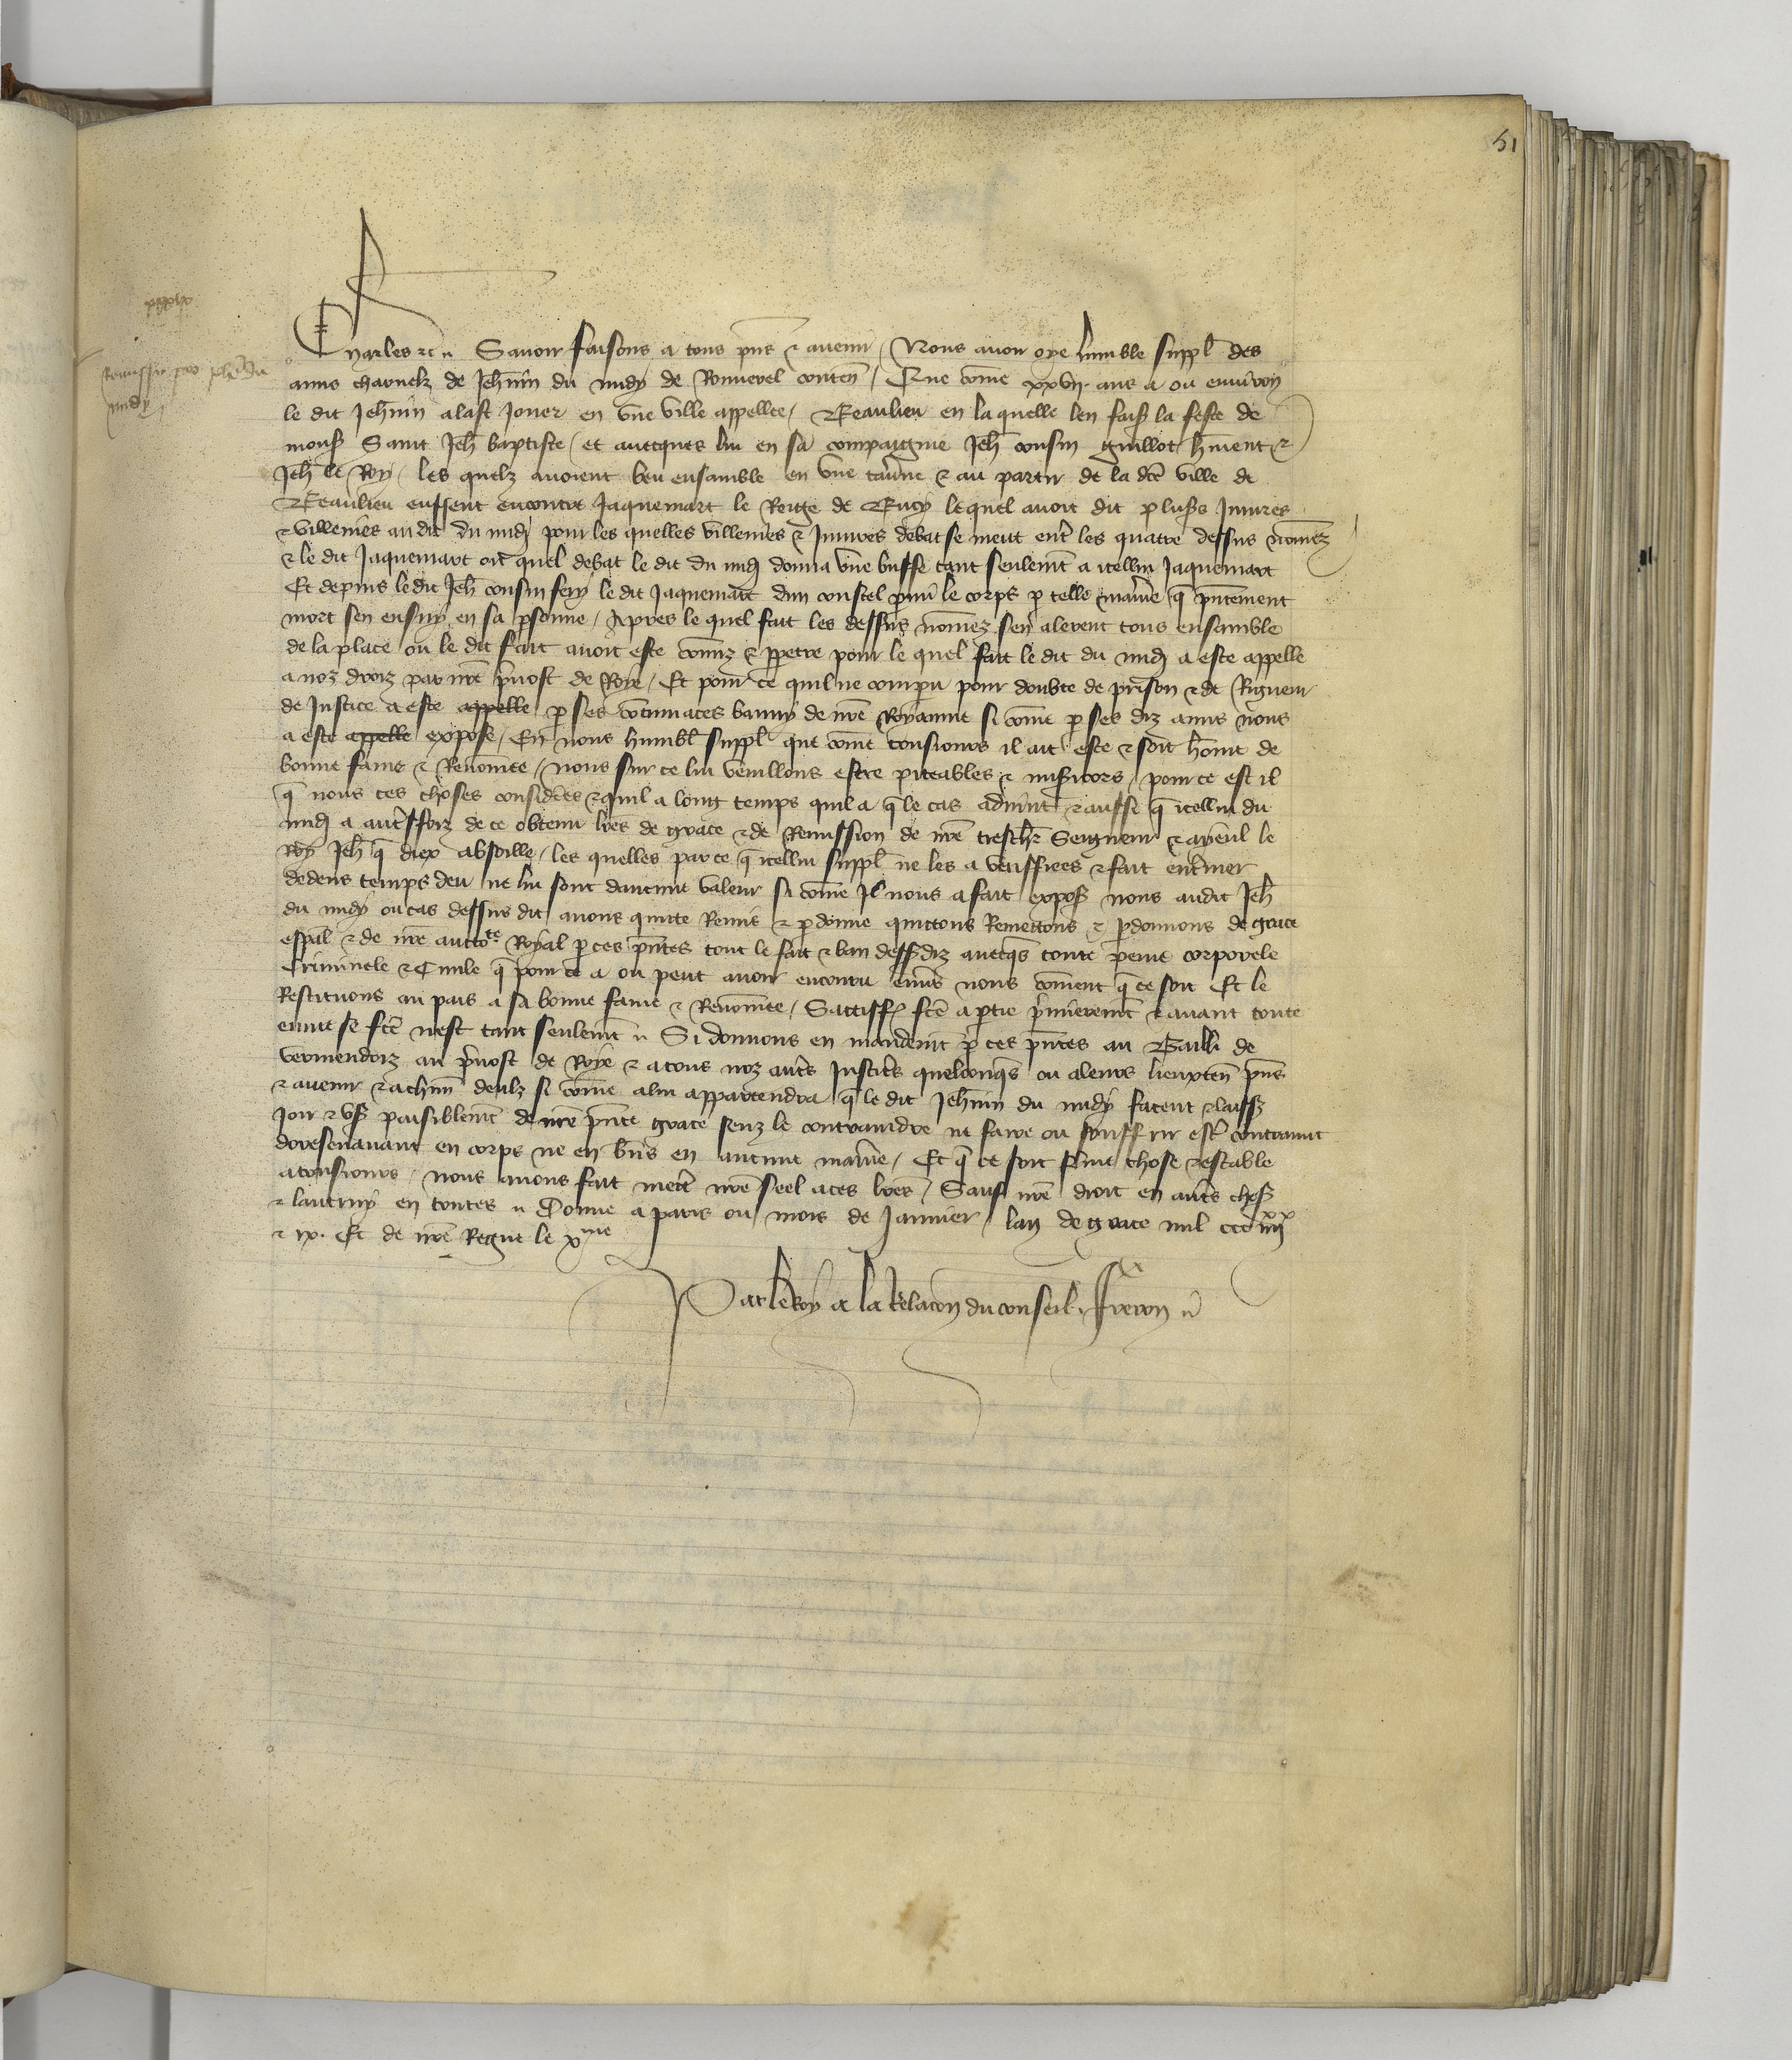 51
Remissio pro Joh̄e du
midy
Charles etc. Savoir faisons a tous p̄ns ⁊ avenir / Nous avoir oye lumble suppl̄ des
amis charnelz de Jeh̄nin du midy de Rouverel conten̄ / Que com̄e xxvij. ans a ou environ
le dit Jeh̄nin alast jouer en une ville appellee / Beaulieu en la quelle len fais̄ la feste de
mons̄ Saint Jeh̄ baptiste / et avecques lui en sa compaignie Jeh̄ cousin guillot ⁊
Jeh̄ le Roy / les quelz avoient beu ensamble en une tav̄ne ⁊ au partir de la dc̄e ville de
Beaulieu eussent encontre Jaquemart le de lequel avoit dit plus̄s injures
⁊ villenies au dit du midj pour les quelles villenies ⁊ Injures debat se meut ent̄ les quatre dessus nom̄ez
⁊ le dit Jaquemart ou quel debat le dit du midj donna une buffe tant seulem̄t a icellui Jaquemart
Et depuis le dit Jeh̄ cousin fery le dit Jaquemart dun coustel p̄mi le corps p̱ telle mani̓e q̄ p̄ntem̄ent
mort sen ensuy en sa p̱sonne / Apres le quel fait les dessus nom̄ez sen alerent tous ensamble
de la place ou le dit fait avoit este com̄iz ⁊ p̱petre pour le quel fait le dit du midj a este appelle
a noz droiz par nr̄e p̄vost de Roye / Et pour ce quil ne comparu pour doubte de prison ⁊ de Rigueur
de Justice a este appelle p̱ ses contumaces banny de nr̄e Royaume si com̄e p̱ ses diz amis nous
a este appelle expose / En nous humbl̄ suppl̄ que com̄e tousiours il ait este ⁊ soit hom̄e de
bonne fame ⁊ Renom̄ee / nous sur ce lui veuillons estre piteables ⁊ mis̄icors / pour ce est il
q̄ nous ces choses consid̄ees ⁊ quil a long temps quil a q̄ le cas advint ⁊ aussi q̄ icellui du
midj a aut̄sfoiz de ce obtenu lr̄es de grace ⁊ de Remission de nr̄e tresch̄r Seigneur ⁊ ayeul le
Roy Jeh̄ q̄ diex absoille / les quelles par ce q̄ icellui suppl̄ ne les a veriffiees ⁊ fait ent̄iner
dedens temps deu ne lui sont daucune valeur si com̄e Il nous a fait expos̄ nous audit Jeh̄
du midy ou cas dessus dit avons quitte Remis ⁊ p̱donne quittons Remettons ⁊ p̱donnons de grace
esp̄al ⁊ de nr̄e auctote Royal p̱ ces p̄ntes tout le fait ⁊ ban dess̄diz avecq̄s toute peine corporele
Criminele ⁊ Civile q̄ pour ce a ou peut avoir encouru env̄s nous com̄ent q̄ ce soit Et le
Restituons au pais a sa bonne fame ⁊ Renom̄ee / Sattisfc̄ fc̄e a p̱tie p̄mierem̄t ⁊ avant toute
euvre se fc̄e nest tant seulem̄t Si donnons en mandem̄t p̱ ces p̄ntes au Bailli de
vermendoiz au p̄vost de Roye ⁊ a tous noz aut̄s Justic̄s quelconq̄s ou a leurs lieuxten̄ p̄ns
⁊ avenir ⁊ a ch̄un deulz si com̄e a lui appartendra q̄ le dit Jeh̄nin du midy facent ⁊ laiss̄
Joir ⁊ us̄ paisiblem̄t de nr̄e p̄nte grace senz le contraindre ne faire ou souffrir est̄ contraint
doresenavant en corps ne en biēs en aucune mani̓e / Et q̄ ce soit ferme chose ⁊ estable
a tousiours / nous avons fait mett̄ nr̄e seel a ces lr̄es / Sauf nr̄e droit en aut̄s chos̄
⁊ lautruy en toutes Donne a paris ou mois de Janvier / lan de grace mil ccc iiijxx
⁊ ix. Et de nr̄e Regne le xme
Par le Roy a la Relacon du conseil. Freron